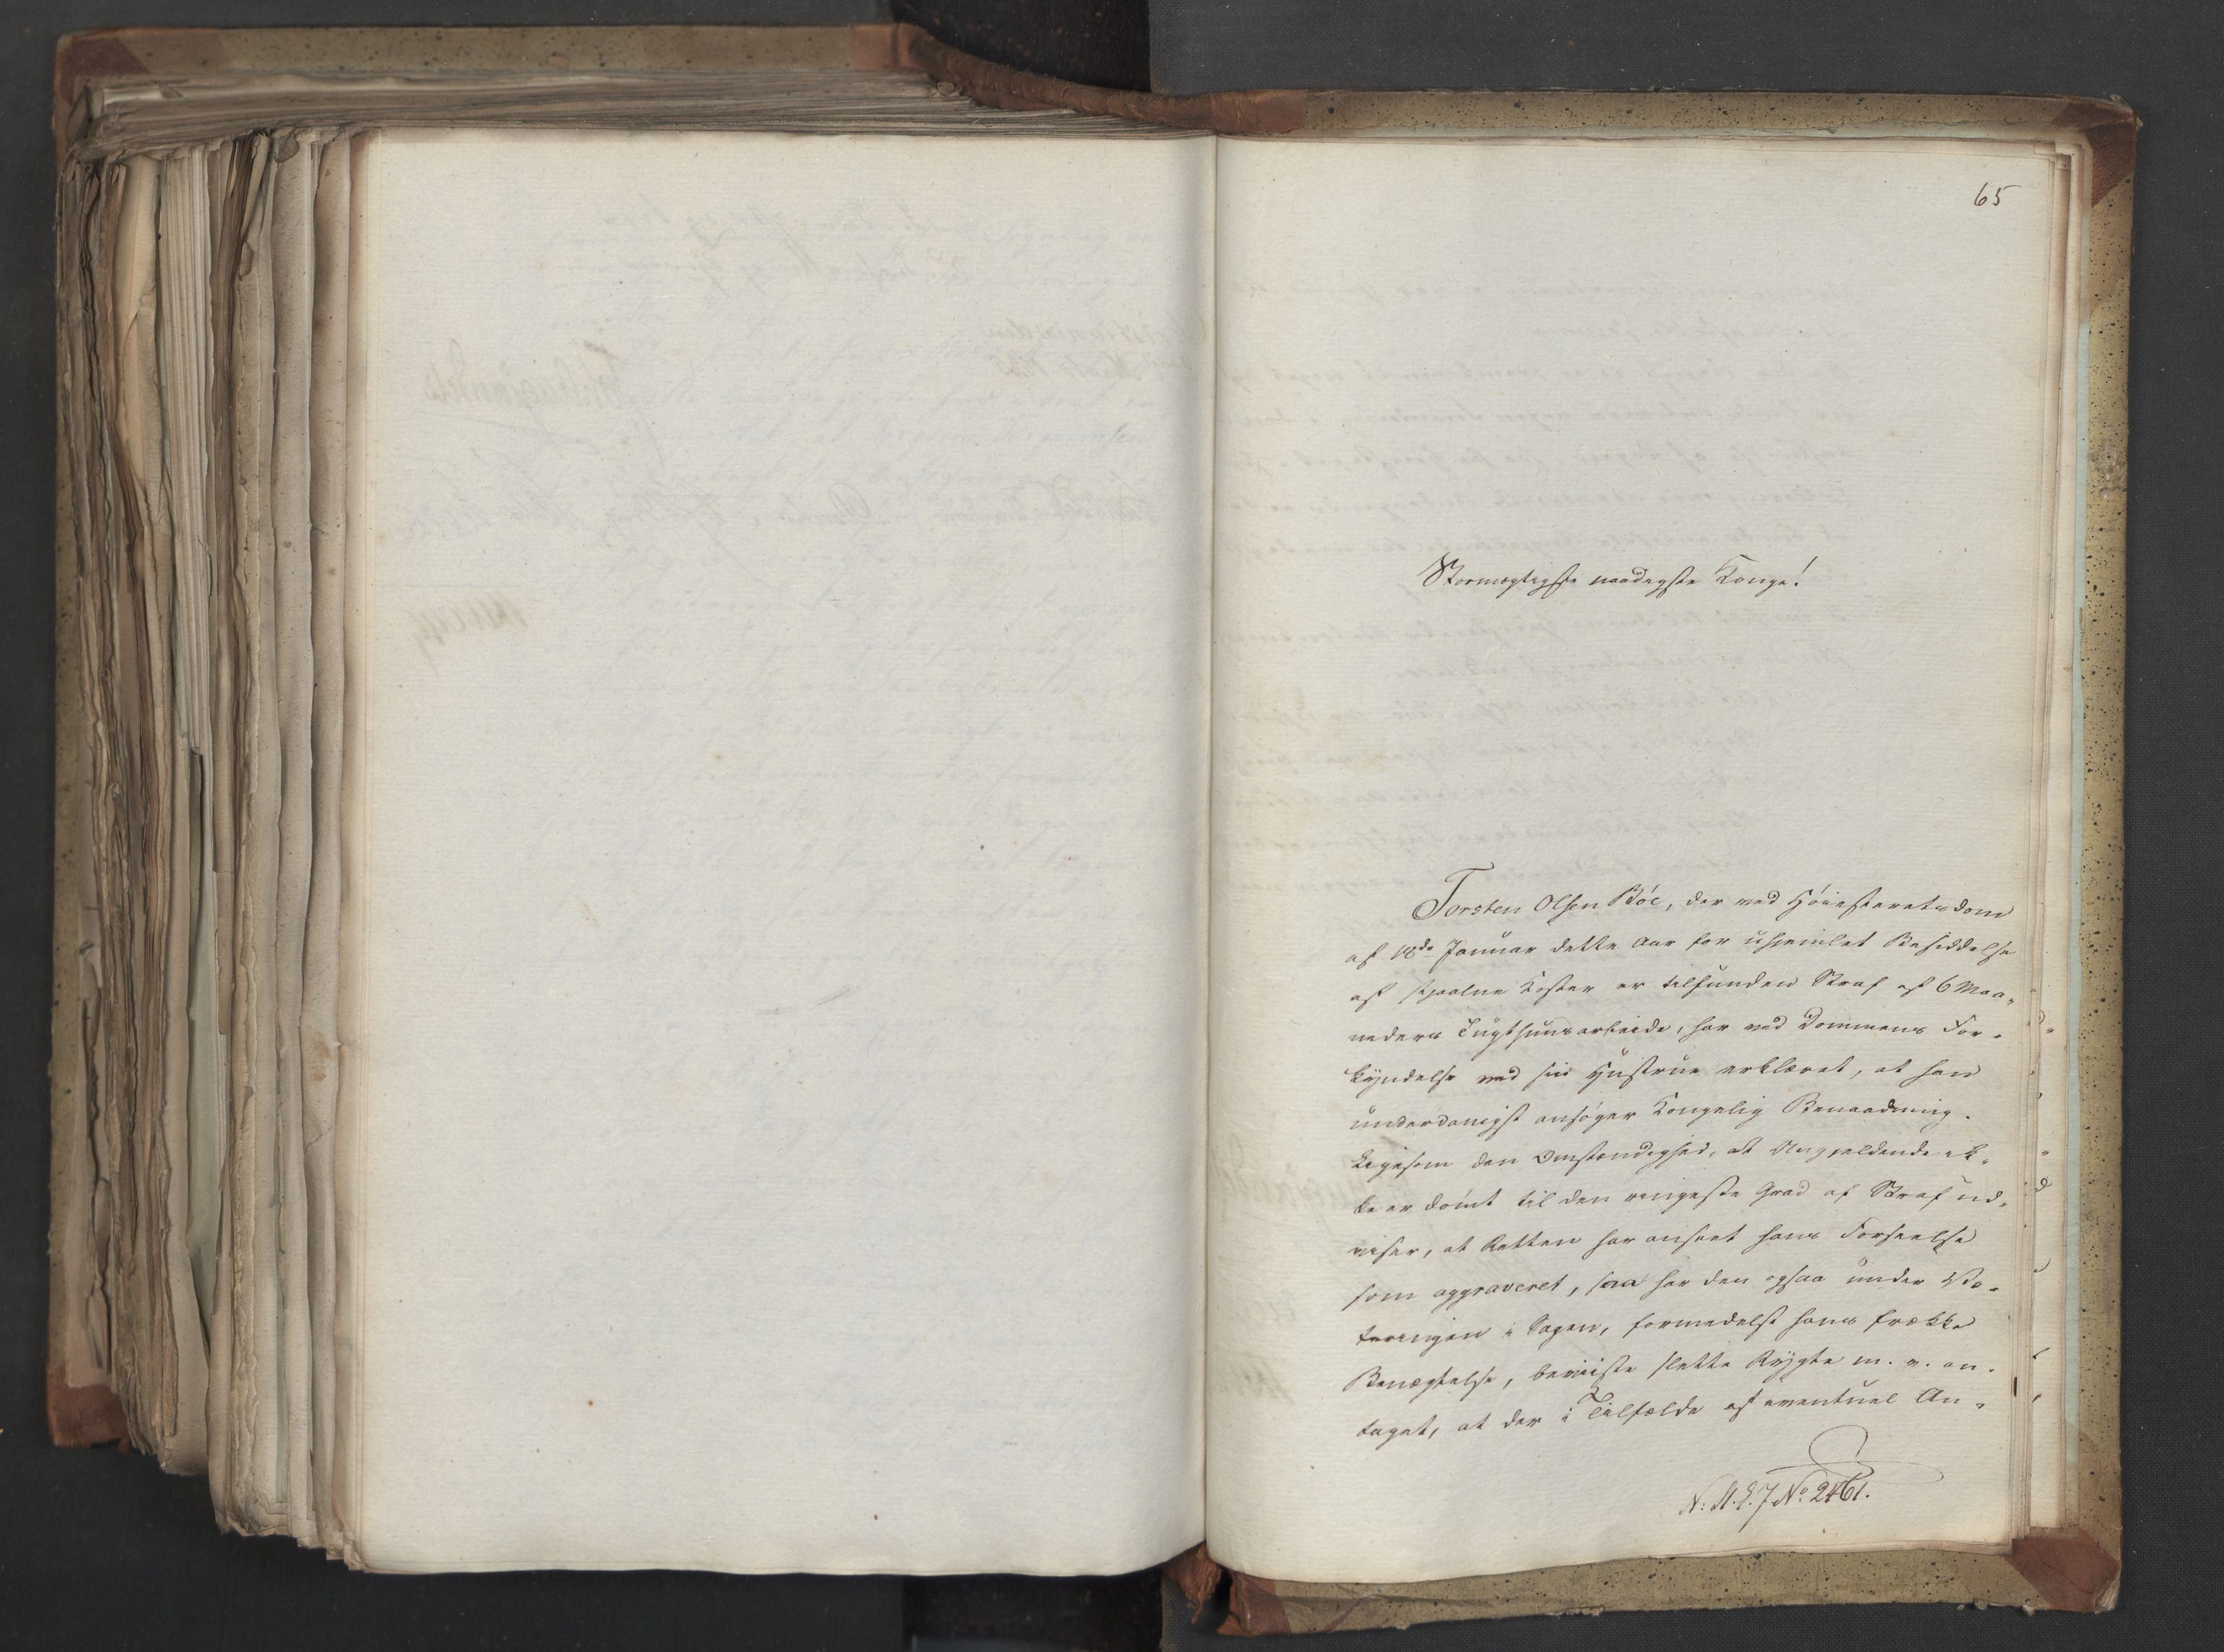 65
Stormægtigste naadigste Konge!
Torsten Olsen Böe, der ved Höiesteretsdom
af 18de Januar dette Aar for uhjemlet Besiddelse
af stjaalne Koster er tilfunden Straf af 6 Maa-
neders Tugthuusarbeide, har ved Dommens For-
kyndelse ved sin Hustrue erklæret, at han
underdanigst ansöger Kongelig Benaadning.
Ligesom den Omstændighed, at Angjeldende ik-
ke er dömt til den ringeste Grad af Straf ud-
viser, at Retten har anseet hans Forseelse
som aggraveret, saa har den ogsaa under Vo-
teringen i Sagen, formedelst hans frække
Benægtelse, beviiste slette Rygte m. v. an-
taget, at der i Tilfælde af eventuel An-
N: St. E. J. No. 2461.